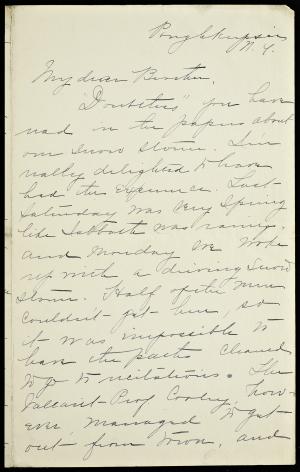 Poughkeepsie
N.Y.
My dear Brother,
"Doubtless" you have
read in the papers about
our snow storm. I'm
really delighted to have
had the experience. Last
Saturday was very Spring
like Sabbath was rainy,
and Monday we woke
up with a driving Snow
storm. Half of the men
couldn't get here, so
it was impossible to
have the paths cleaned
to go to recitations. The
Valiant Prof Cooley, how-
ever, managed to get
out from town, and